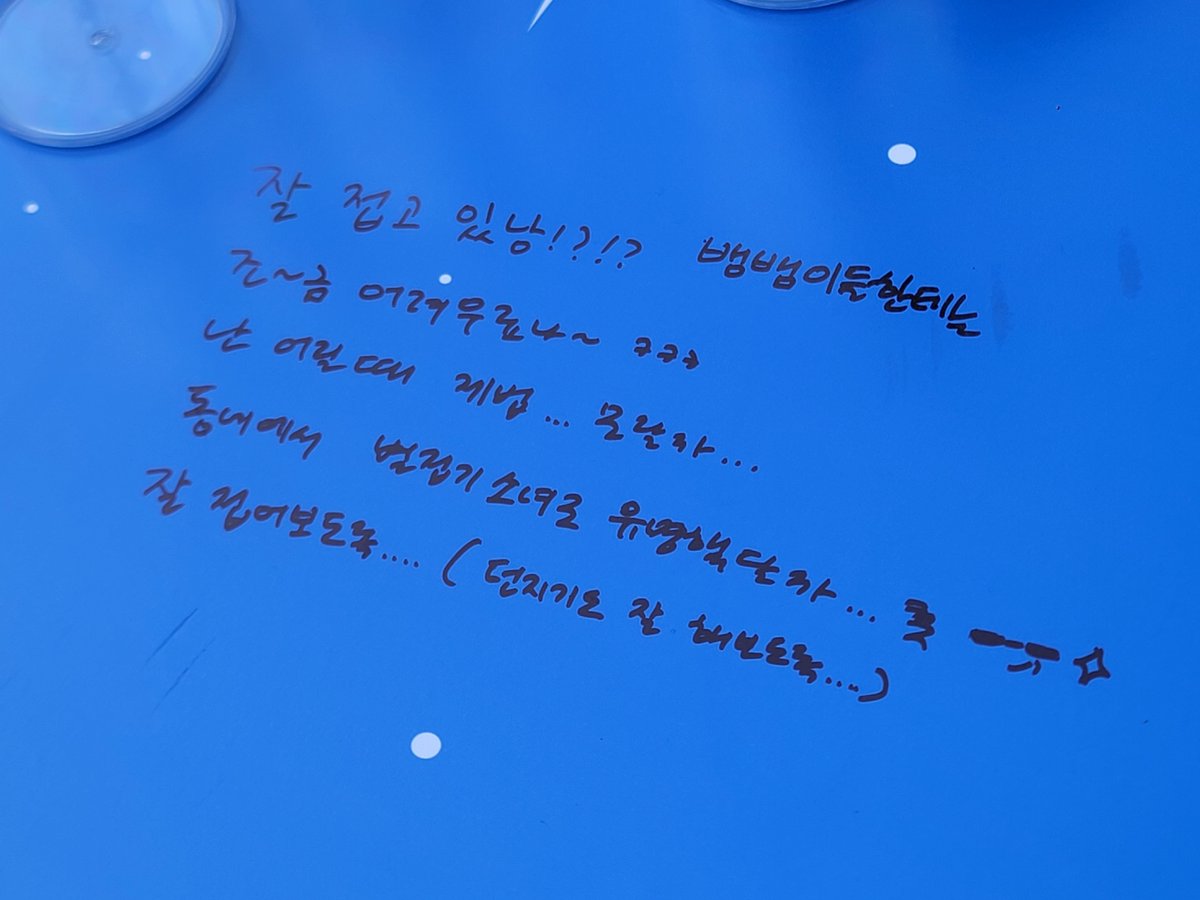 잘 접고 있낭!?!? 뱀뱀이들한테는
조~금 어려우료나~ ㅋㅋㅋ
난 어릴때 제법... 몰랄까...
동네에서 별접기소녀로 유명했단까... 훗
잘 접어보도록.... (던지기도 잘 해보도록....)